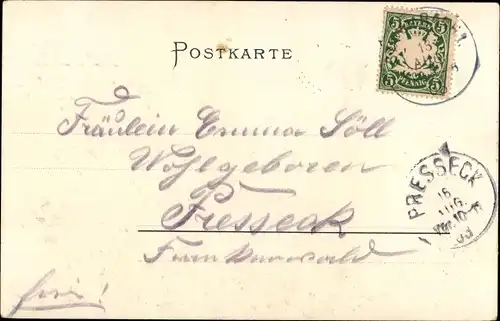 POSTKARTE
BAYERN
5 5
PFENNIG
Fräulein Emma Söll
Wohlgeboren
Presseck
Frankenwald
frei!
PRESSECK
16
AUG
03